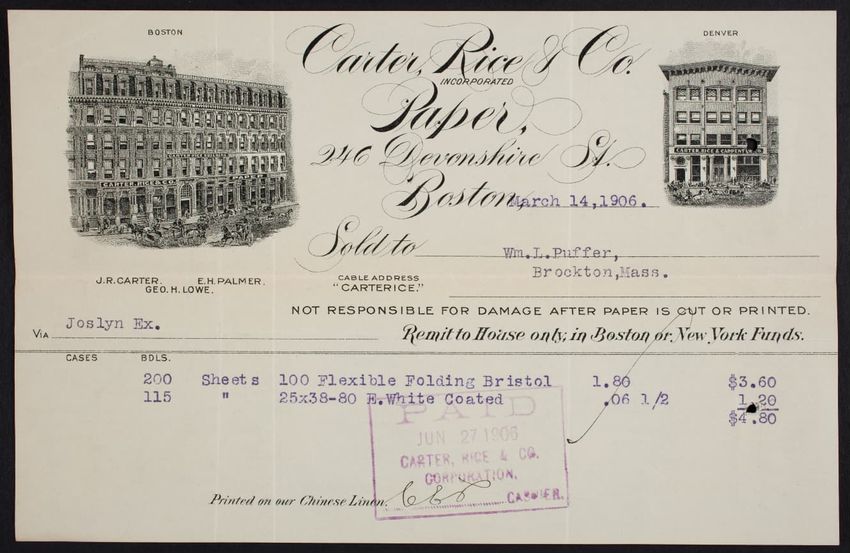 BOSTON
DENVER
Carter, Rice & Co.
INCORPORATED
Paper,
246 Devonshire St.
Boston, March 14,1906.
CARTER, RICE & CO.
CARTER, RICE & CARPENTER
Sold to Wm.L.Puffer,
Brockton,Mass.
J.R. CARTER. E.H. PALMER.
GEO. H. LOWE.
CABLE ADDRESS
"CARTERICE."
NOT RESPONSIBLE FOR DAMAGE AFTER PAPER IS CUT OR PRINTED.
VIA Joslyn Ex.
Remit to House only; in Boston or New York Funds.
CASES BDLS.
200 Sheets 100 Flexible Folding Bristol 1.80 $3.60
115 " 25x38-80 E.White Coated .06 1/2 1.20
$4.80
PAID
JUN 27 1906
CARTER, RICE & CO.
CORPORATION.
CASHIER.
Printed on our Chinese Linen.